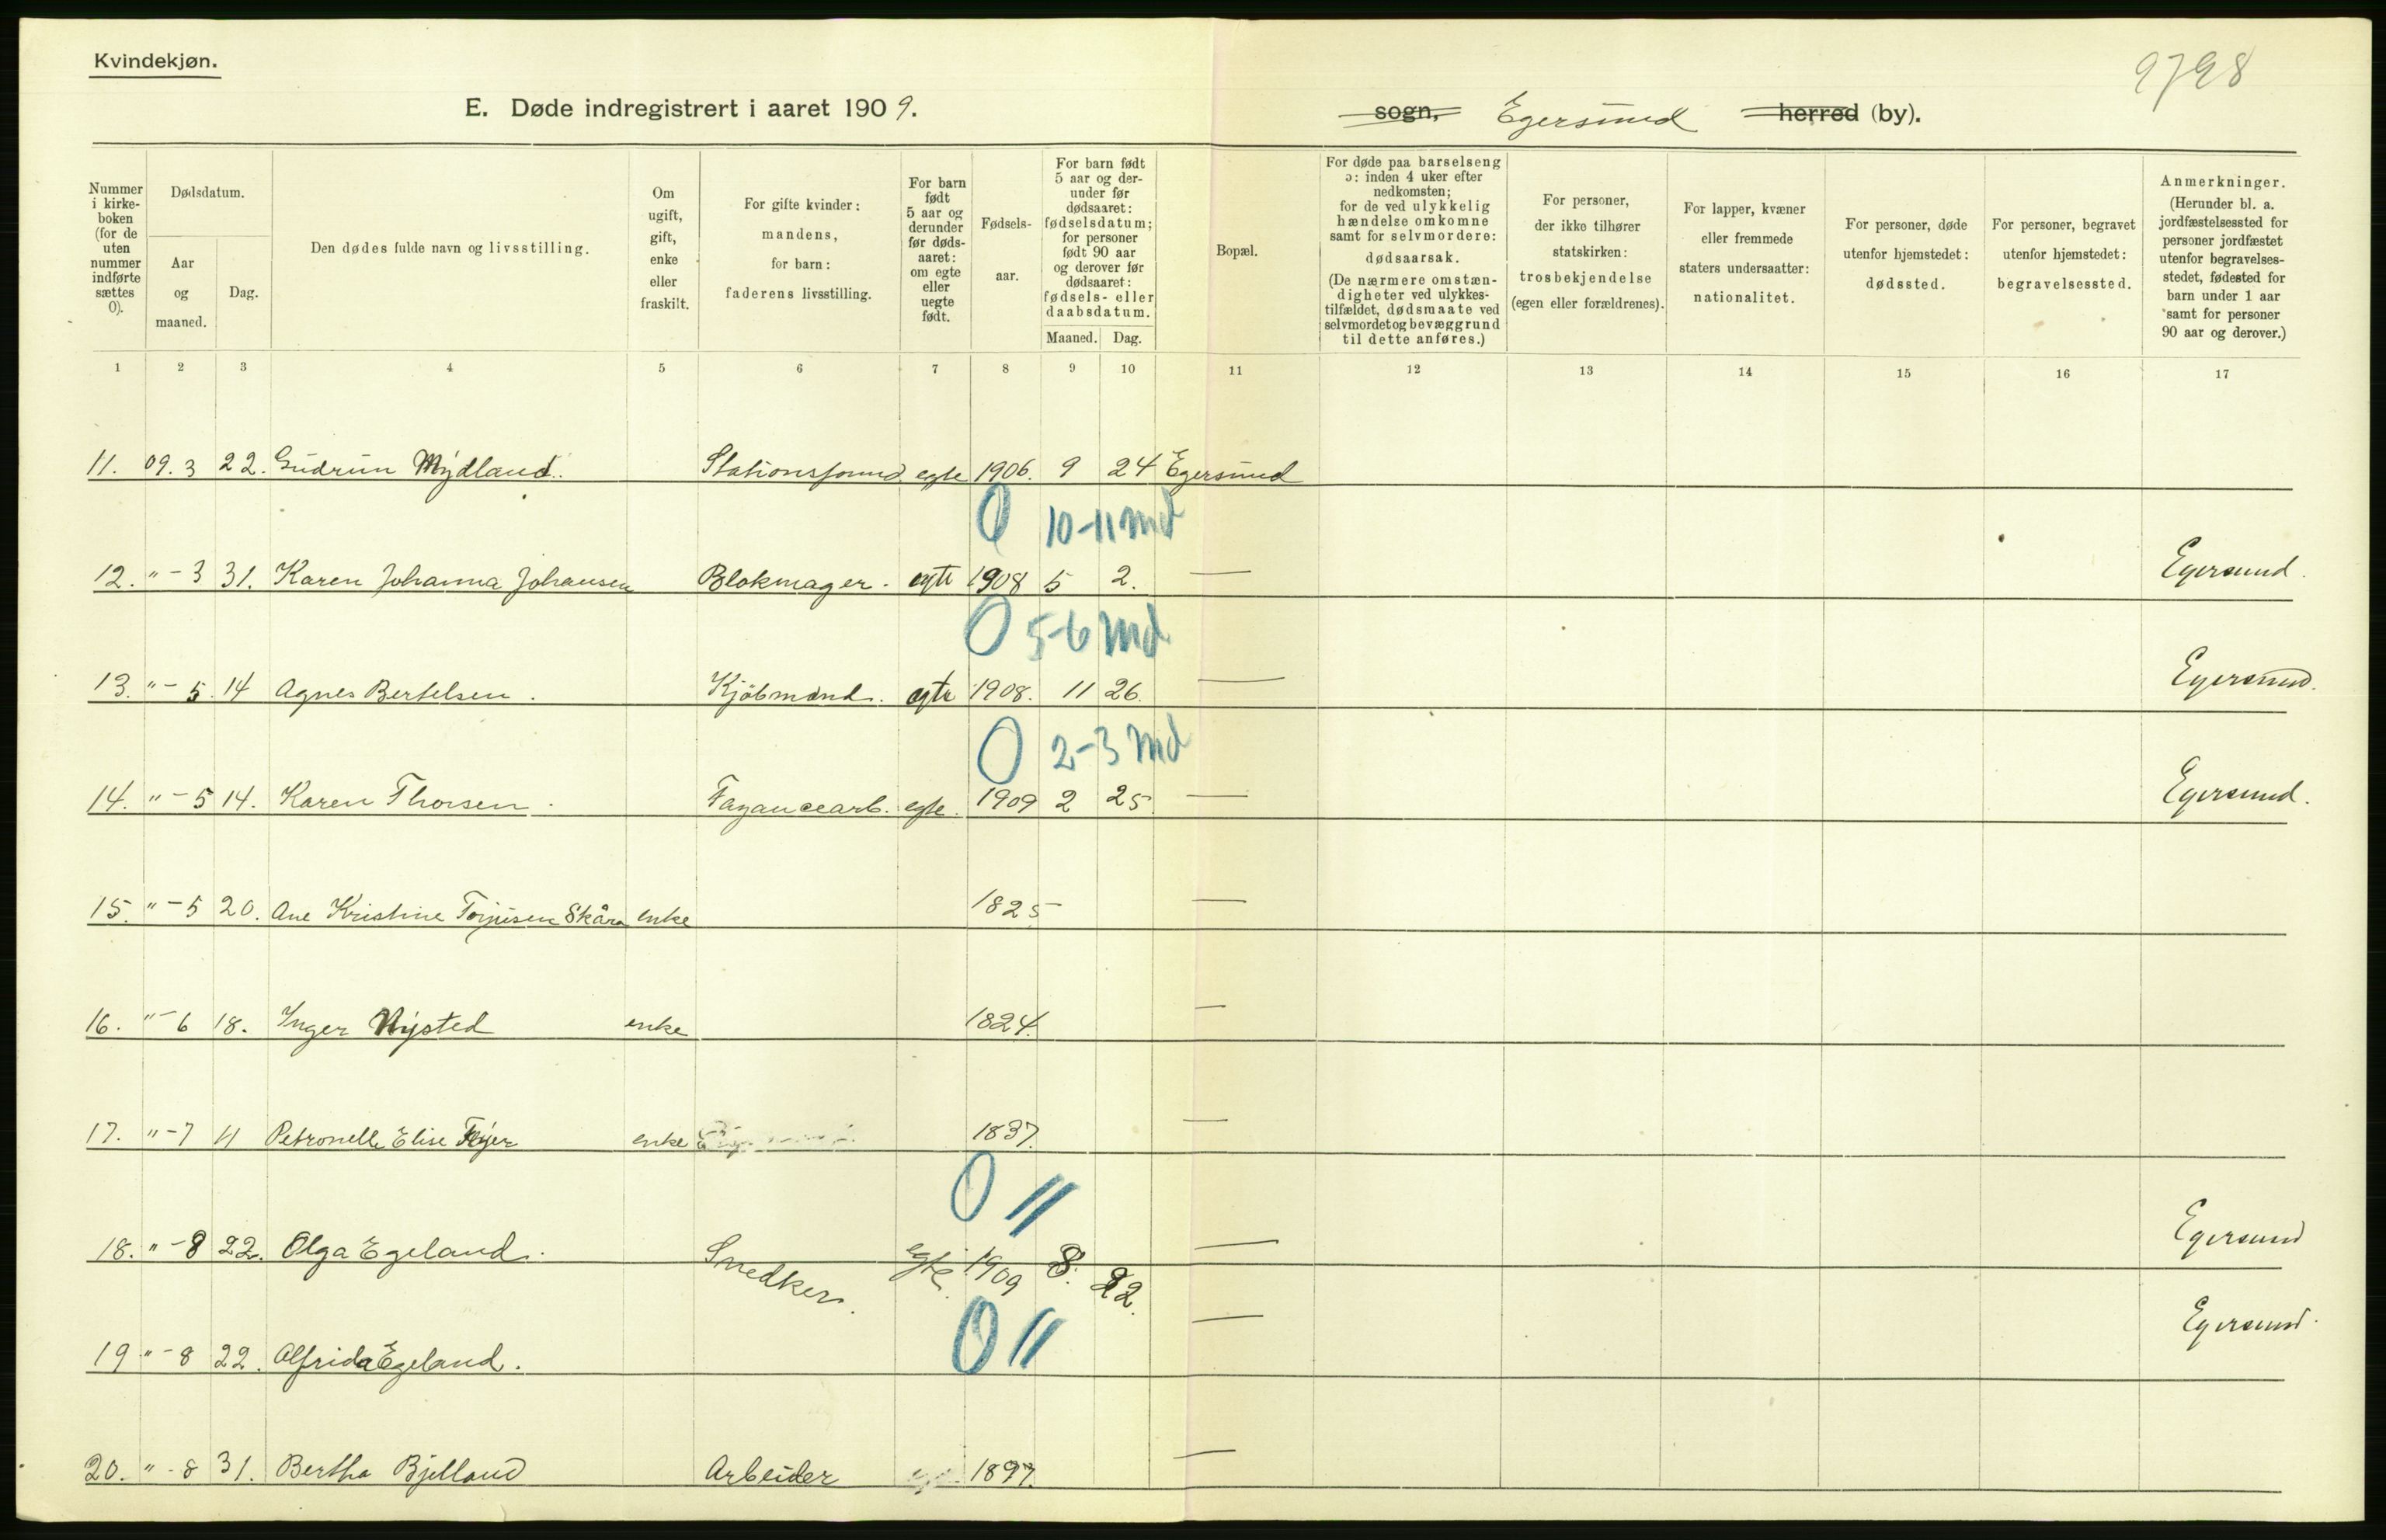 Kvindekjøn.
9798
E. Døde indregistrert i aaret 1909.
sogn, Egersund herred (by).
Nummer i kirke- boken (for de uten nummer indførte sættes 0).
Dødsdatum.
Aar og maaned.
Dag.
Den dødes fulde navn og livsstilling.
Om ugift, gift, enke eller fraskilt.
For gifte kvinder: mandens, for barn: faderens livsstilling.
For barn født 5 aar og derunder før døds- aaret: om egte eller uegte født.
Fødsels- aar.
For barn født 5 aar og der- under før dødsaaret: fødselsdatum; for personer født 90 aar og derover før dødsaaret: fødsels- eller daabsdatum.
Maaned. Dag.
Bopæl.
For døde paa barselseng ɔ: inden 4 uker efter nedkomsten; for de ved ulykkelig hændelse omkomne samt for selvmordere: dødsaarsak. (De nærmere omstæn- digheter ved ulykkes- tilfældet, dødsmaate ved selvmordet og bevæggrund til dette anføres.)
For personer, der ikke tilhører statskirken: trosbekjendelse (egen eller forældrenes).
For lapper, kvæner eller fremmede staters undersaatter: nationalitet.
For personer, døde utenfor hjemstedet: dødssted.
For personer, begravet utenfor hjemstedet: begravelsessted.
Anmerkninger. (Herunder bl. a. jordfæstelsessted for personer jordfæstet utenfor begravelses- stedet, fødested for barn under 1 aar samt for personer 90 aar og derover.)
1 2 3 4 5 6 7 8 9 10 11 12 13 14 15 16 17
11. 09.3 22. Gudrun Mydland. egte 1906. 9 24 Egersund
0 10-11 md
12. "-3 31. Karen Johanna Johansen Blokmager. egte 1908 5 2. — Egersund.
0 5-6 md
13. "-5. 14 Agnes Bertelsen. Kjøbmand. egte 1908. 11 26. — Egersund.
0 2-3 md
14. "-5 14. Karen Thorsen. Fayancearb. egte. 1909 2 25. — Egersund.
15. "-5 20. Ane Kristine Torjusen Skåra enke 1825 —
16. "-6 18. Inger Nysted enke 1824. —
17. "-7 11 Petronelle Elise enke 1837. —
0 11
18. "-8 22. Olga Egeland. Snedker. egte. 1909 8. 22. — Egersund
0 11
19 "-8 22. Alfrida Egeland. — Egersund.
20. "-8 31. Bertha Bjelland Arbeider 1897. —